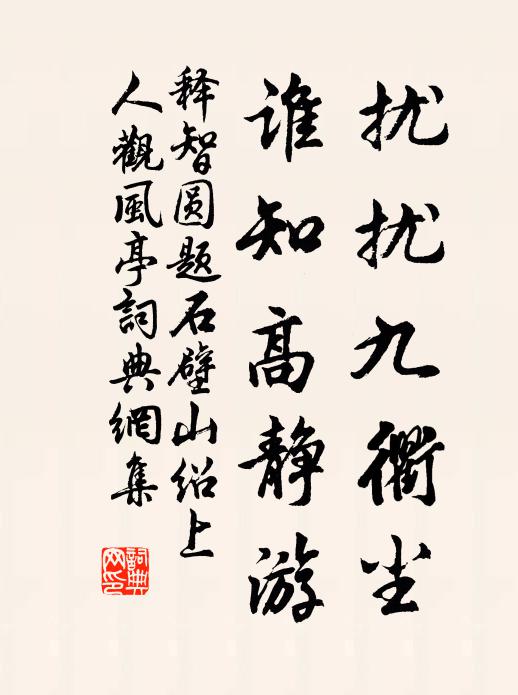 扰扰九衢尘
谁知髙静游
释智圆题石壁山绍上
人觀風亭詞典網集
詞典
网印